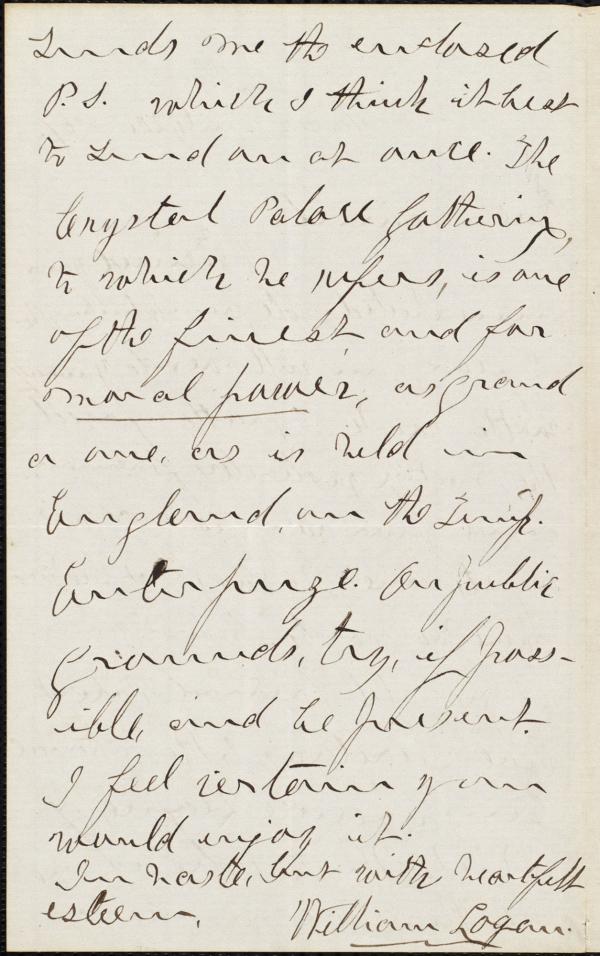 sends me the enclosed
P.S. which I think it best
to send on at once. The
Crystal Palace gathering,
to which he refers, is one
of the finest, and for
moral power, as grand
a one, as is held in
England, on the Temp.
Enterprize. On public
grounds, try, if poss-
ible, and be present.
I feel certain you
would enjoy it.
In haste, but with heartfelt
esteem,
William Logan.